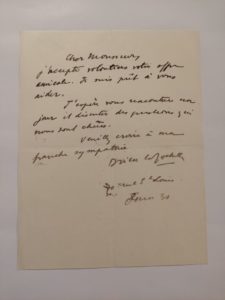 Cher Monsieur,
j'accepte volontiers votre offre
amicale. Je suis prêt à vous
aider.
J'espère vous rencontrer un
jour et discuter des questions qui
nous sont chères.
Veuillez croire à ma
franche sympathie
Drieu la Rochelle
rue St Louis